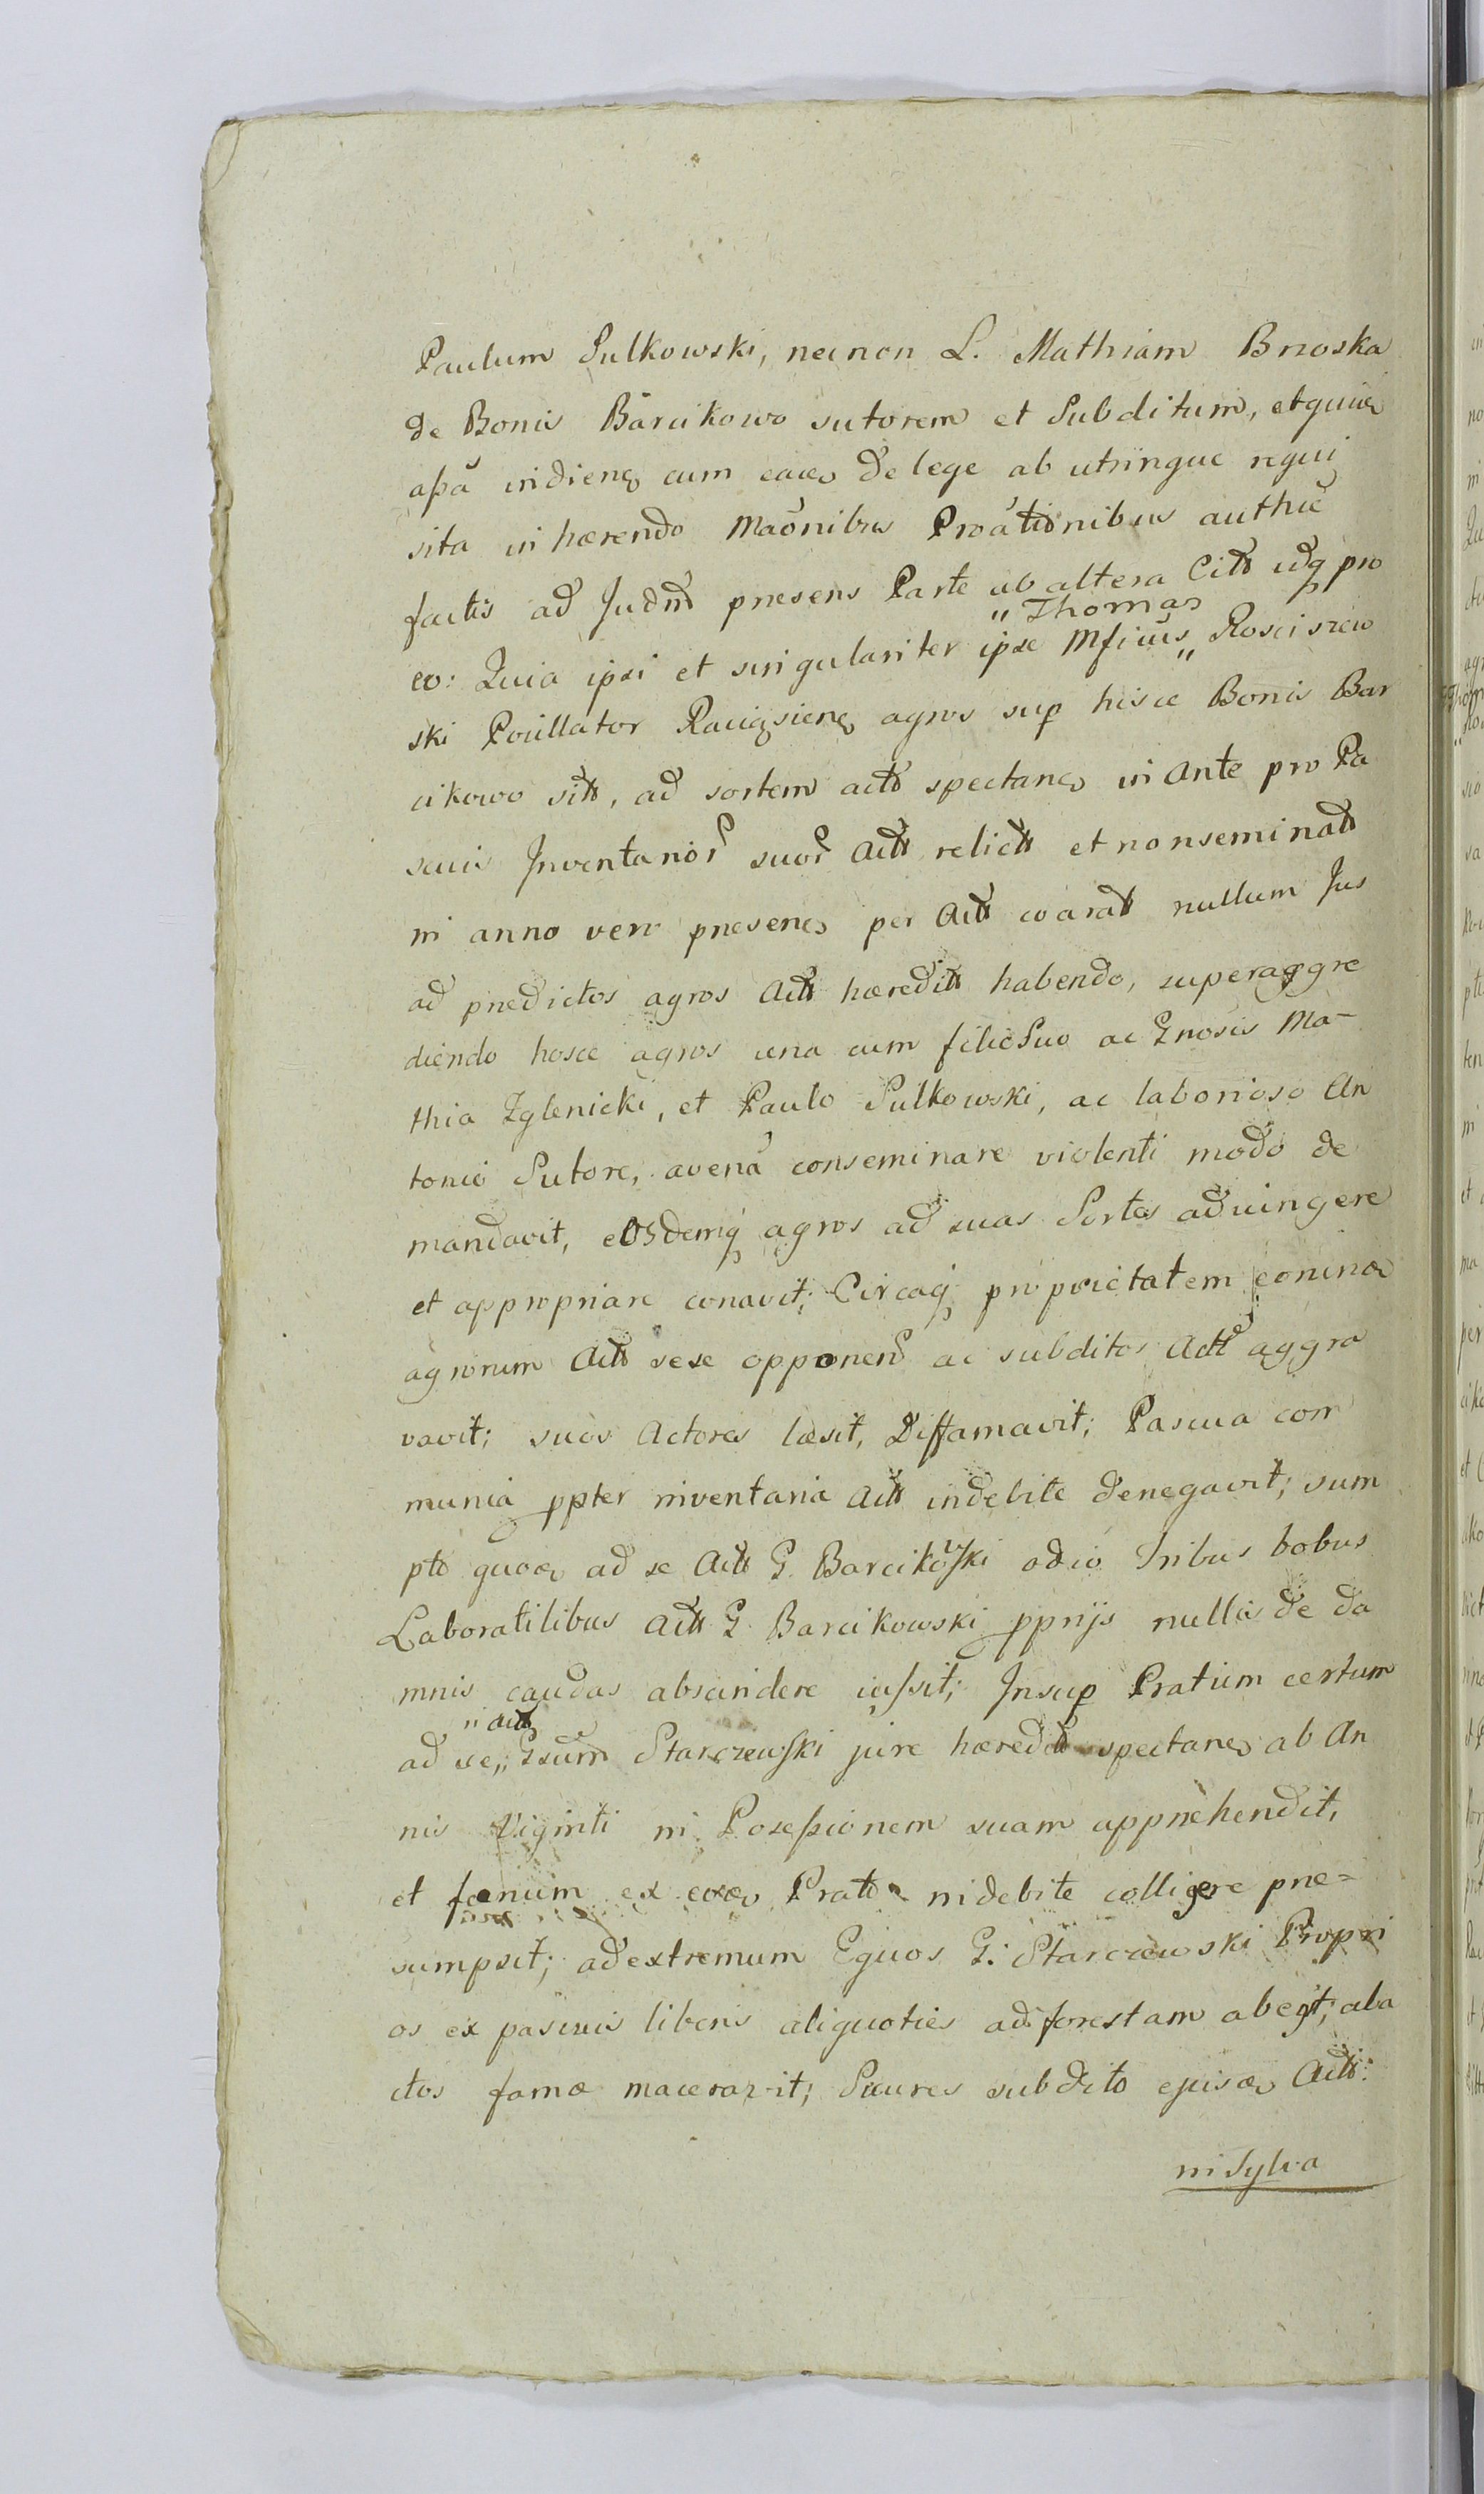 Paulum Sulkowski, necnon L. Mathiam Brzoska
de Bonis Barcikowo sutorem et Subditum, et
indienę cum de lege ab utrinque requi
sita in hærendo Maõnibus Proãtionibus
factis ad Judm presens Parte ab altera Citt idq pro
„Thomas
eo: Quia ipsi et singulariter ipse Mficus „ Rosciszew
ski Pocillator agros sup hisce Bonis Bar
cikowo sitt, ad sortem actt spectanes in Ante pro Pa
scuis Inventarior suor Actt relictt et nonseminatt
in anno vero presenes per Actt coaratt nullum Jus
ad predictos agros Actt hæreditt habendo, superaggre
diendo hosce agros una cum filio Suo ac Gnosis Ma-
thia Zglenicki, et Paulo Sulkowski, ac laborioso An
tonio Sutore, avenã conseminare violenti modo de
mandavit, eosdemq agros ad suas Sortes adiungere
et appropriare conavit; Circaq proprietatem
agrorum Actt sese opponen ac subditos Actt aggra
vavit; suos Actores læsit, Diffamavit; Pascua com
munia ppter inventaria Actt indebite denegavit; sum
pto ad se Actt G. Barcikowski odio Tribus bobus
Laboratilibus Actt G Barcikowski pprijs nullis de da
mnis caudas abscindere iussit; Insup Pratum certum
„ Actt
ad se „ Gsum Starczewski jure hæreditt spectanes ab An
nis Viginti in Posessionem suam apprehendit,
et fænum ex Pratt indebite colligere præ=
sumpsit; ad extremum Equos G. Starczewski Propri
os ex pascuis liberis aliquoties ad forestam abegit, aba
ctos fame maceravit; Secures subdito Actt:
in Sylva